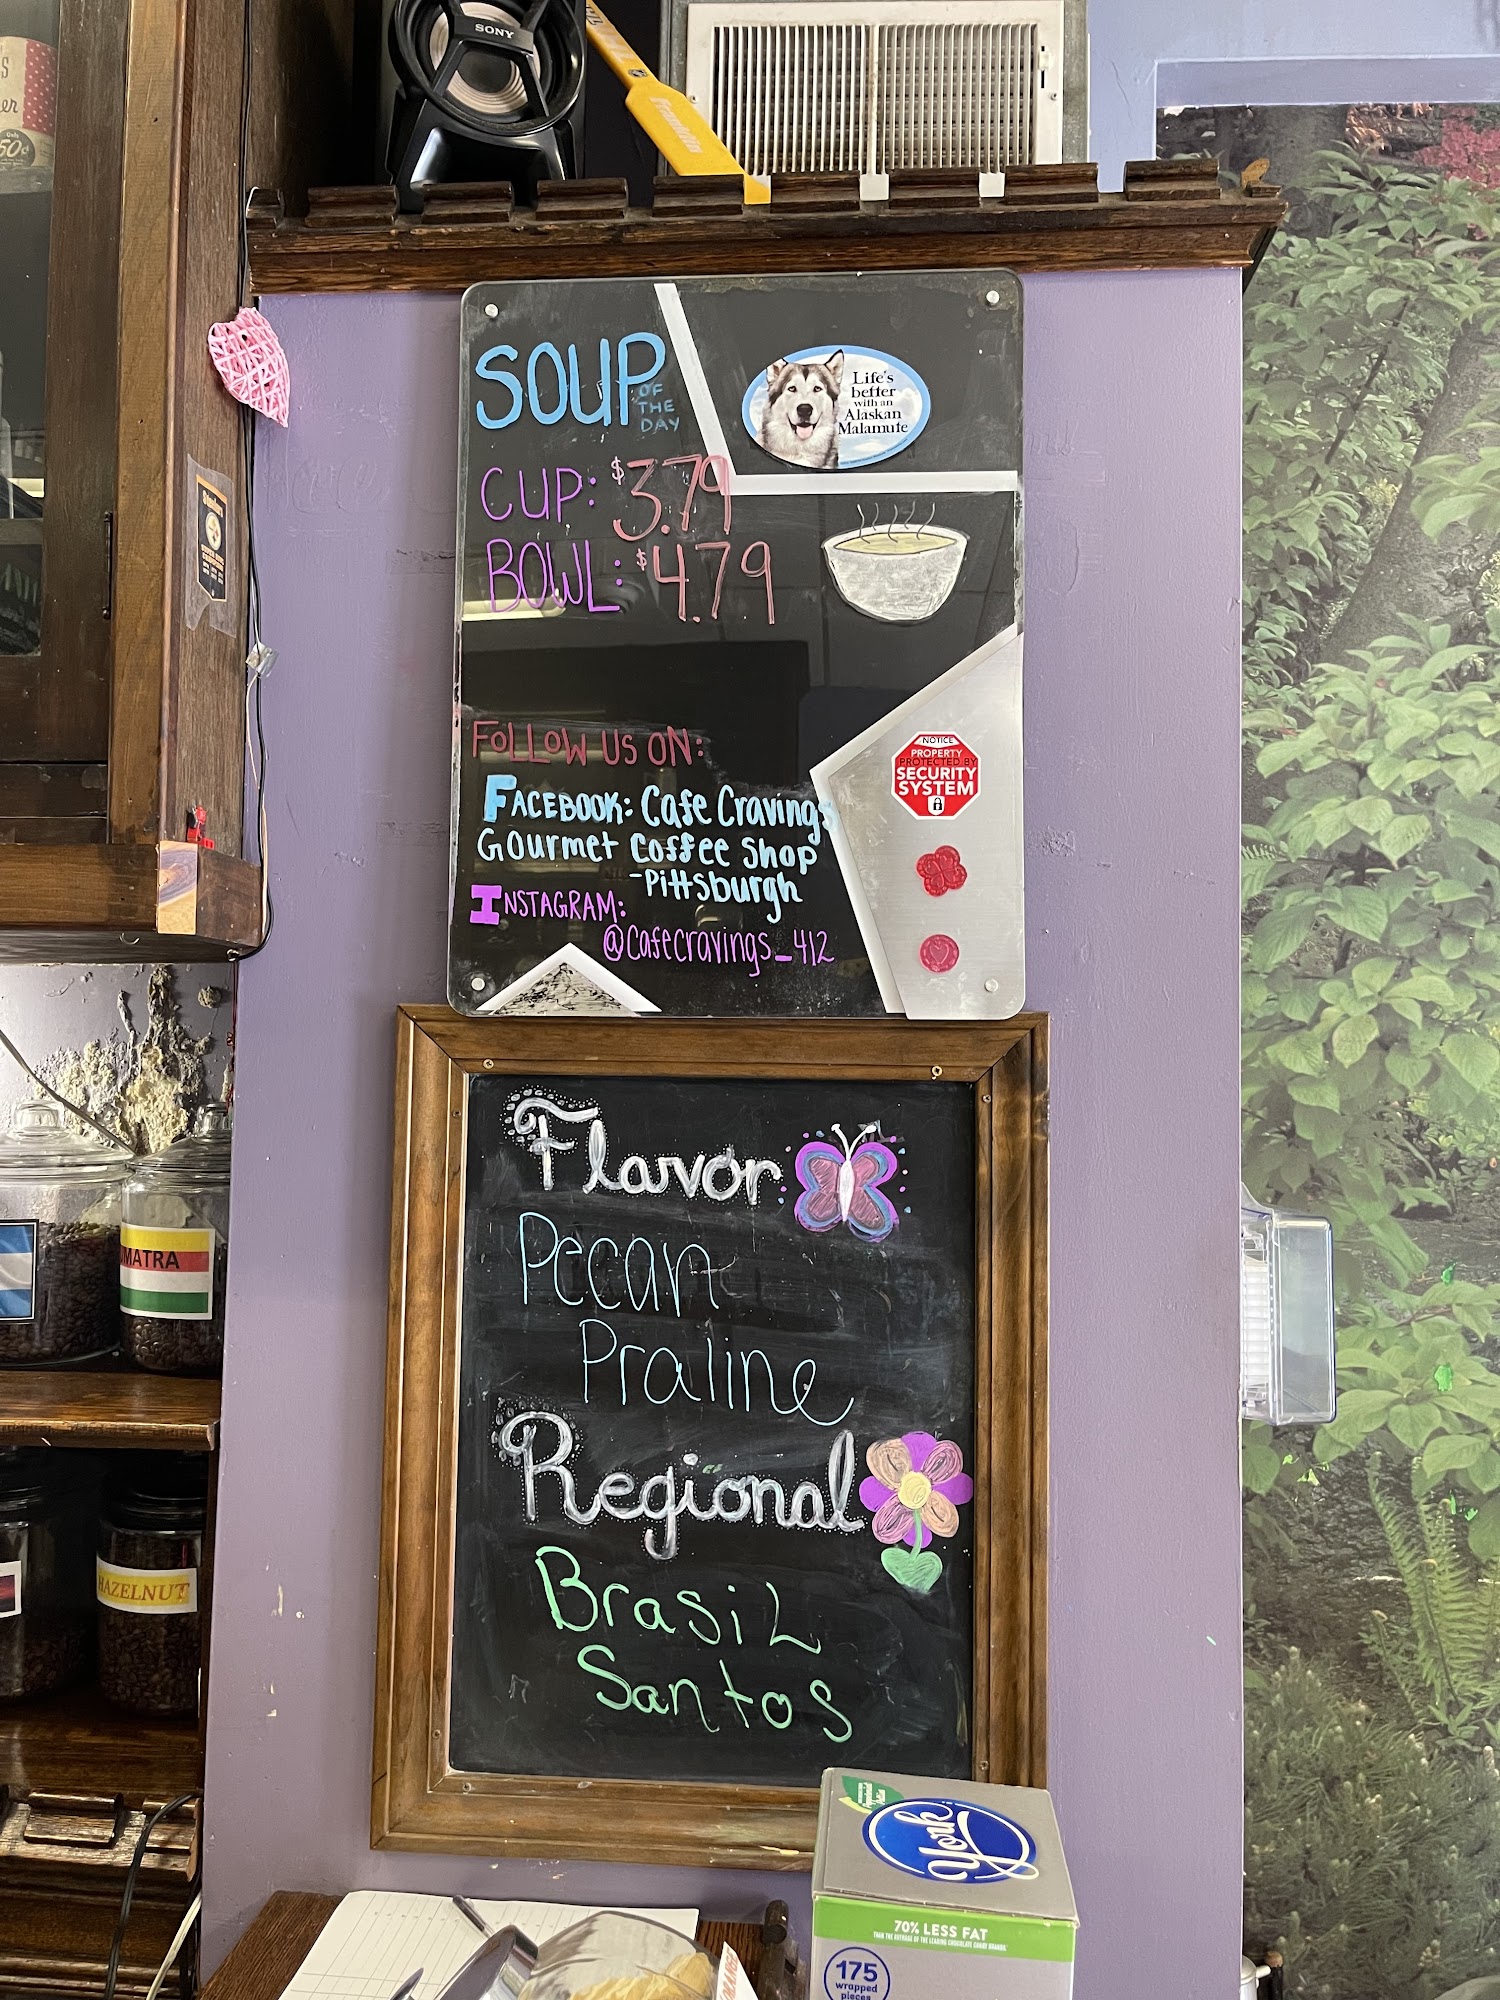 SONY
Franklin
50¢
SOUP
OF
THE
DAY
Life's
better
with an
Alaskan
Malamute
CUP: $3.79
BOWL: $4.79
FOLLOW US ON:
FACEBOOK: Cafe Cravings
Gourmet Coffee Shop
-Pittsburgh
INSTAGRAM:
@cafecravings_412
NOTICE
PROPERTY
PROTECTED BY
SECURITY
SYSTEM
Flavor
Pecan
Praline
Regional
Brasil
Santos
MATRA
HAZELNUT
York
70% LESS FAT
175
wrapped
pieces